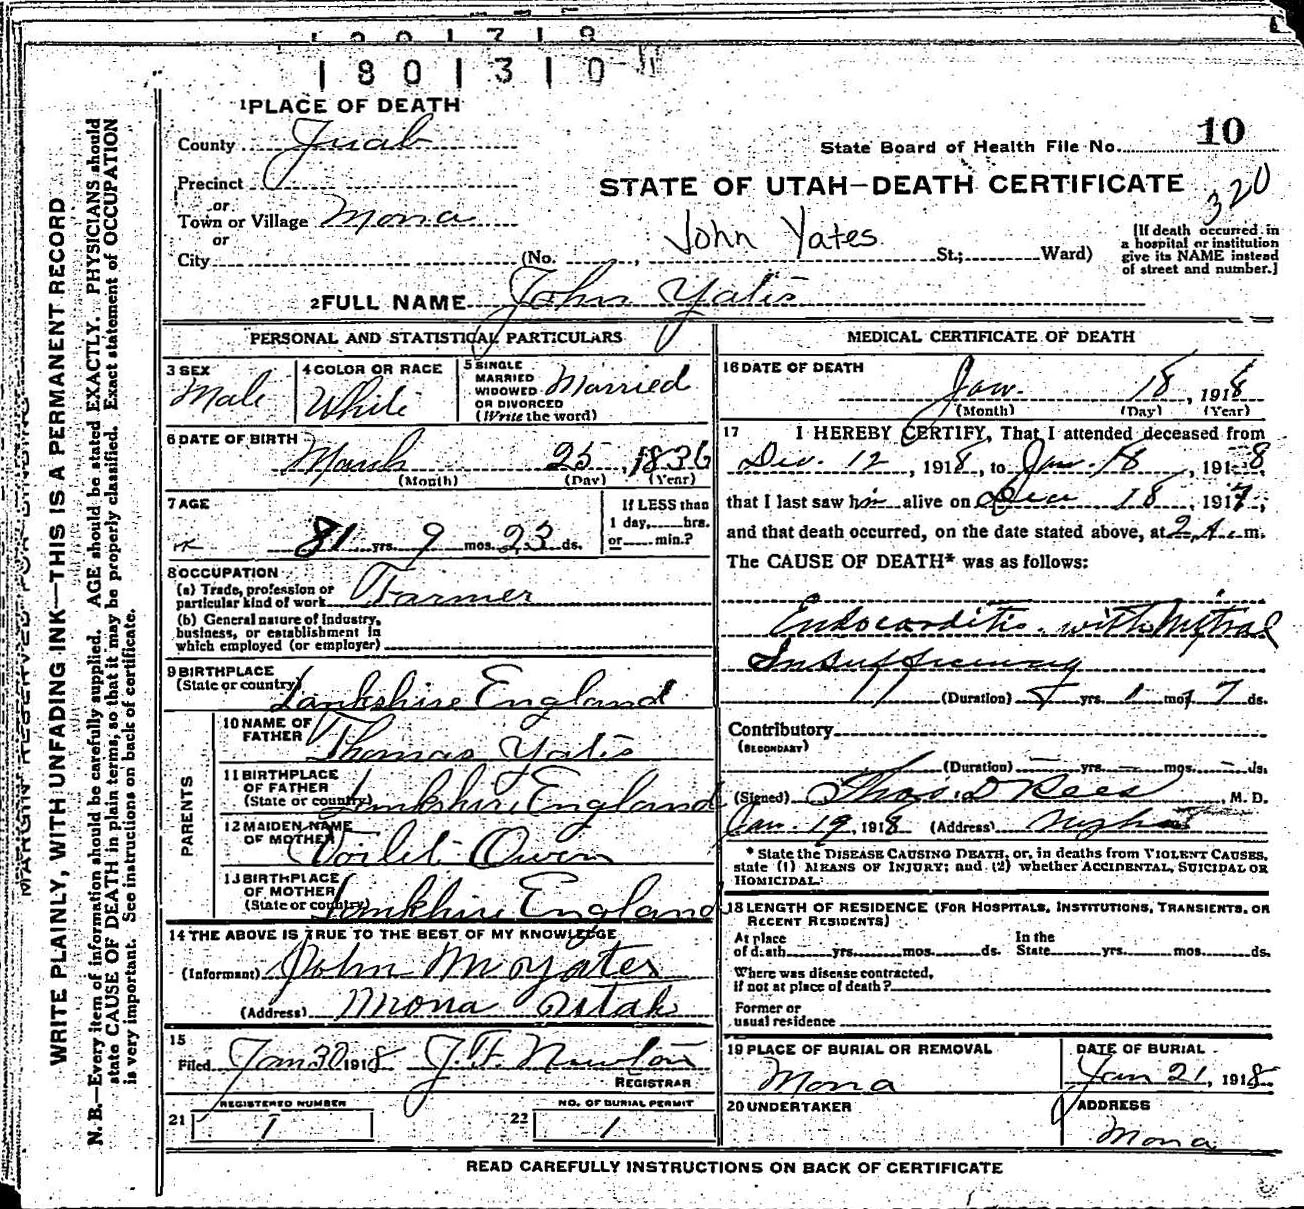 1801310
1 PLACE OF DEATH
County Juab
State Board of Health File No. 10
Precinct
STATE OF UTAH—DEATH CERTIFICATE
320
or
Town or Village Mona
or
John Yates
[If death occurred in a hospital or institution give its NAME instead of street and number.]
City (No. , St.; Ward)
2 FULL NAME John Yates
PERSONAL AND STATISTICAL PARTICULARS
3 SEX Male
4 COLOR OR RACE White
5 SINGLE MARRIED WIDOWED OR DIVORCED (Write the word) Married
6 DATE OF BIRTH March 25, 1836
(Month) (Day) (Year)
7 AGE
81 yrs. 9 mos. 23 ds.
If LESS than 1 day, hrs. or min.?
8 OCCUPATION
(a) Trade, profession or particular kind of work Farmer
(b) General nature of Industry, business, or establishment in which employed (or employer)
9 BIRTHPLACE
(State or country) Lankshire England
PARENTS
10 NAME OF FATHER Thomas Yates
11 BIRTHPLACE OF FATHER (State or country) Lankshire England
12 MAIDEN NAME OF MOTHER Voilet Owen
13 BIRTHPLACE OF MOTHER (State or country) Lankhire England
14 THE ABOVE IS TRUE TO THE BEST OF MY KNOWLEDGE
(Informant) John M Yates
(Address) Mona Utah
15
Filed Jan 30 1918 J. F. Newton
REGISTRAR
REGISTERED NUMBER
21 1
NO. OF BURIAL PERMIT
22 1
MEDICAL CERTIFICATE OF DEATH
16 DATE OF DEATH
Jan. 18, 1918
(Month) (Day) (Year)
17 I HEREBY CERTIFY, That I attended deceased from
Dec. 12, 1918, to Jan. 18, 1918
that I last saw him alive on Dec 18, 1917,
and that death occurred, on the date stated above, at 2 A. m.
The CAUSE OF DEATH* was as follows:
Endocarditis with Mitral
Insufficiency
(Duration) yrs. 1 mos. 7 ds.
Contributory
(SECONDARY)
(Duration) — yrs. — mos. — ds.
(Signed) Thos. D Rees M. D.
Jan. 19, 1918 (Address)
* State the DISEASE CAUSING DEATH, or, in deaths from VIOLENT CAUSES,
state (1) MEANS OF INJURY; and (2) whether ACCIDENTAL, SUICIDAL OR
HOMICIDAL.
18 LENGTH OF RESIDENCE (FOR HOSPITALS, INSTITUTIONS, TRANSIENTS, OR
RECENT RESIDENTS)
At place of death yrs. mos. ds. In the State yrs. mos. ds.
Where was disease contracted,
if not at place of death?
Former or
usual residence
19 PLACE OF BURIAL OR REMOVAL
Mona
DATE OF BURIAL
Jan 21, 1918
20 UNDERTAKER
ADDRESS
Mona
READ CAREFULLY INSTRUCTIONS ON BACK OF CERTIFICATE
MARGIN RESERVED FOR BINDING
WRITE PLAINLY, WITH UNFADING INK—THIS IS A PERMANENT RECORD
N. B.—Every item of information should be carefully supplied. AGE should be stated EXACTLY. PHYSICIANS should
state CAUSE OF DEATH in plain terms, so that it may be properly classified. Exact statement of OCCUPATION
is very important. See instructions on back of certificate.